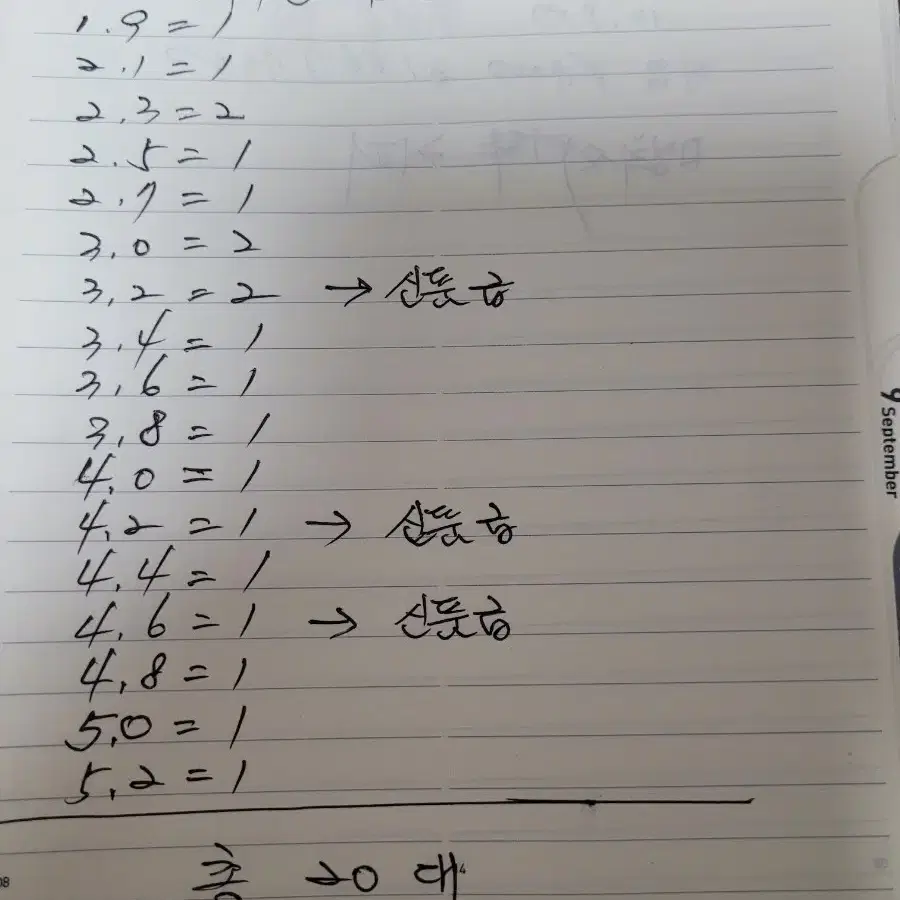 1.9 = 1
2.1 = 1
2.3 = 2
2.5 = 1
2.7 = 1
3.0 = 2
3.2 = 2 → 신품급
3.4 = 1
3.6 = 1
3.8 = 1
4.0 = 1
4.2 = 1 → 신품급
4.4 = 1
4.6 = 1 → 신품급
4.8 = 1
5.0 = 1
5.2 = 1
총 20 대
9
September